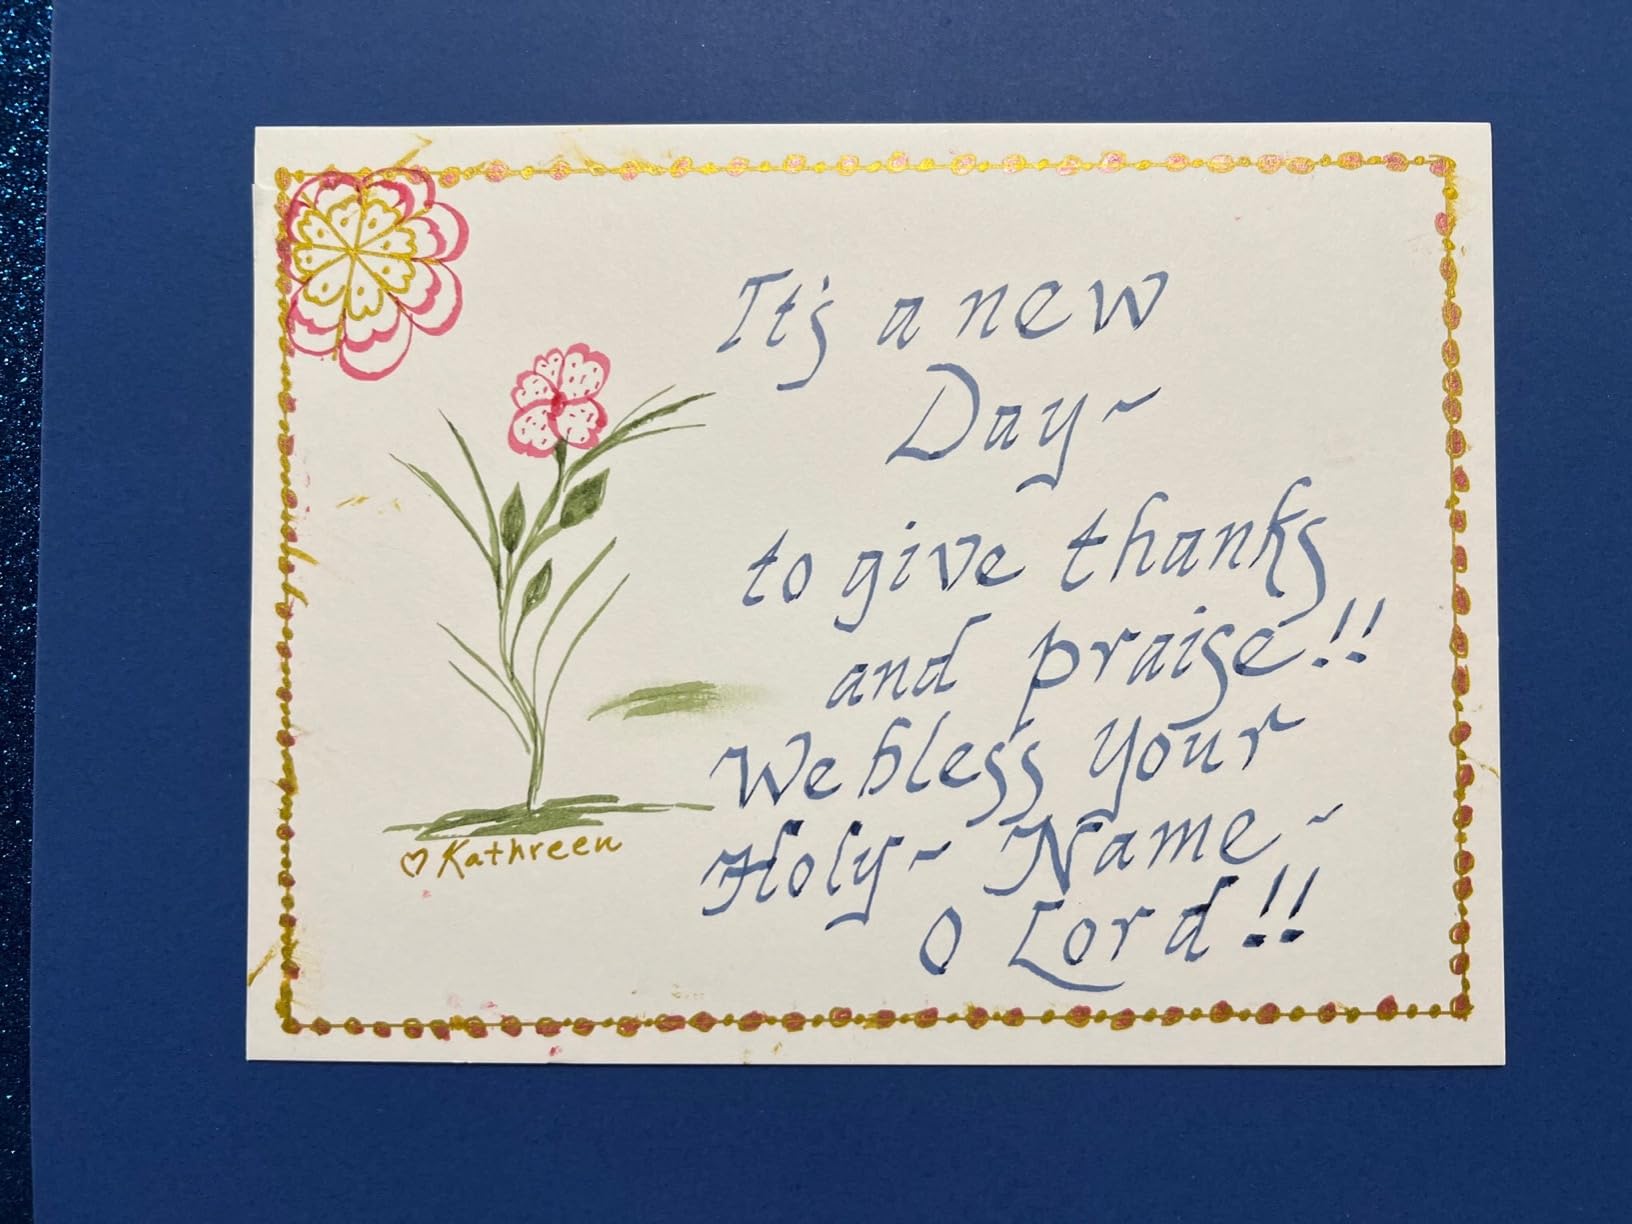 It's a new
Day~
to give thanks
and praise!!
We bless Your
Holy~ Name~
O Lord!!
♡ Kathreen